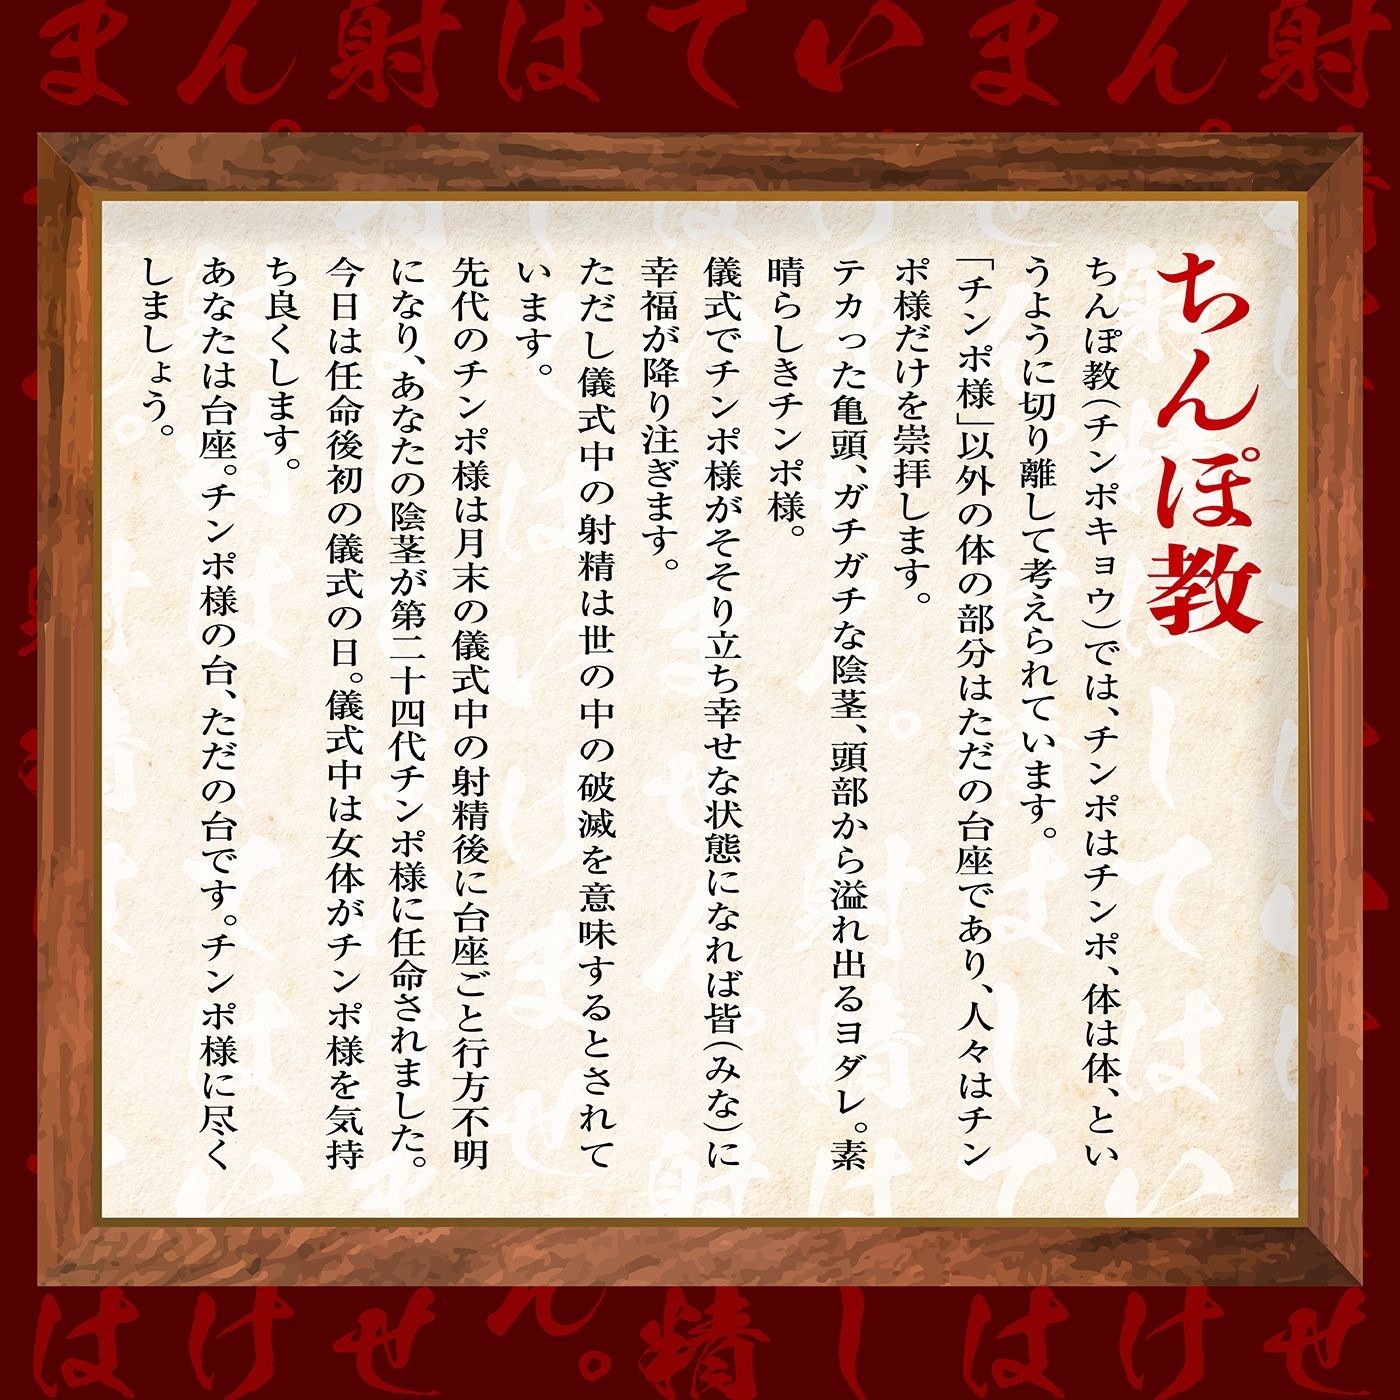 まん射はていまん射
ちんぽ教
ちんぽ教（チンポキョウ）では、チンポはチンポ、体は体、とい
うように切り離して考えられています。
「チンポ様」以外の体の部分はただの台座であり、人々はチン
ポ様だけを崇拝します。
テカった亀頭、ガチガチな陰茎、頭部から溢れ出るヨダレ。素
晴らしきチンポ様。
儀式でチンポ様がそそり立ち幸せな状態になれば皆（みな）に
幸福が降り注ぎます。
ただし儀式中の射精は世の中の破滅を意味するとされて
います。
先代のチンポ様は月末の儀式中の射精後に台座ごと行方不明
になり、あなたの陰茎が第二十四代チンポ様に任命されました。
今日は任命後初の儀式の日。儀式中は女体がチンポ様を気持
ち良くします。
あなたは台座。チンポ様の台、ただの台です。チンポ様に尽く
しましょう。
はけせん。精しはけせ